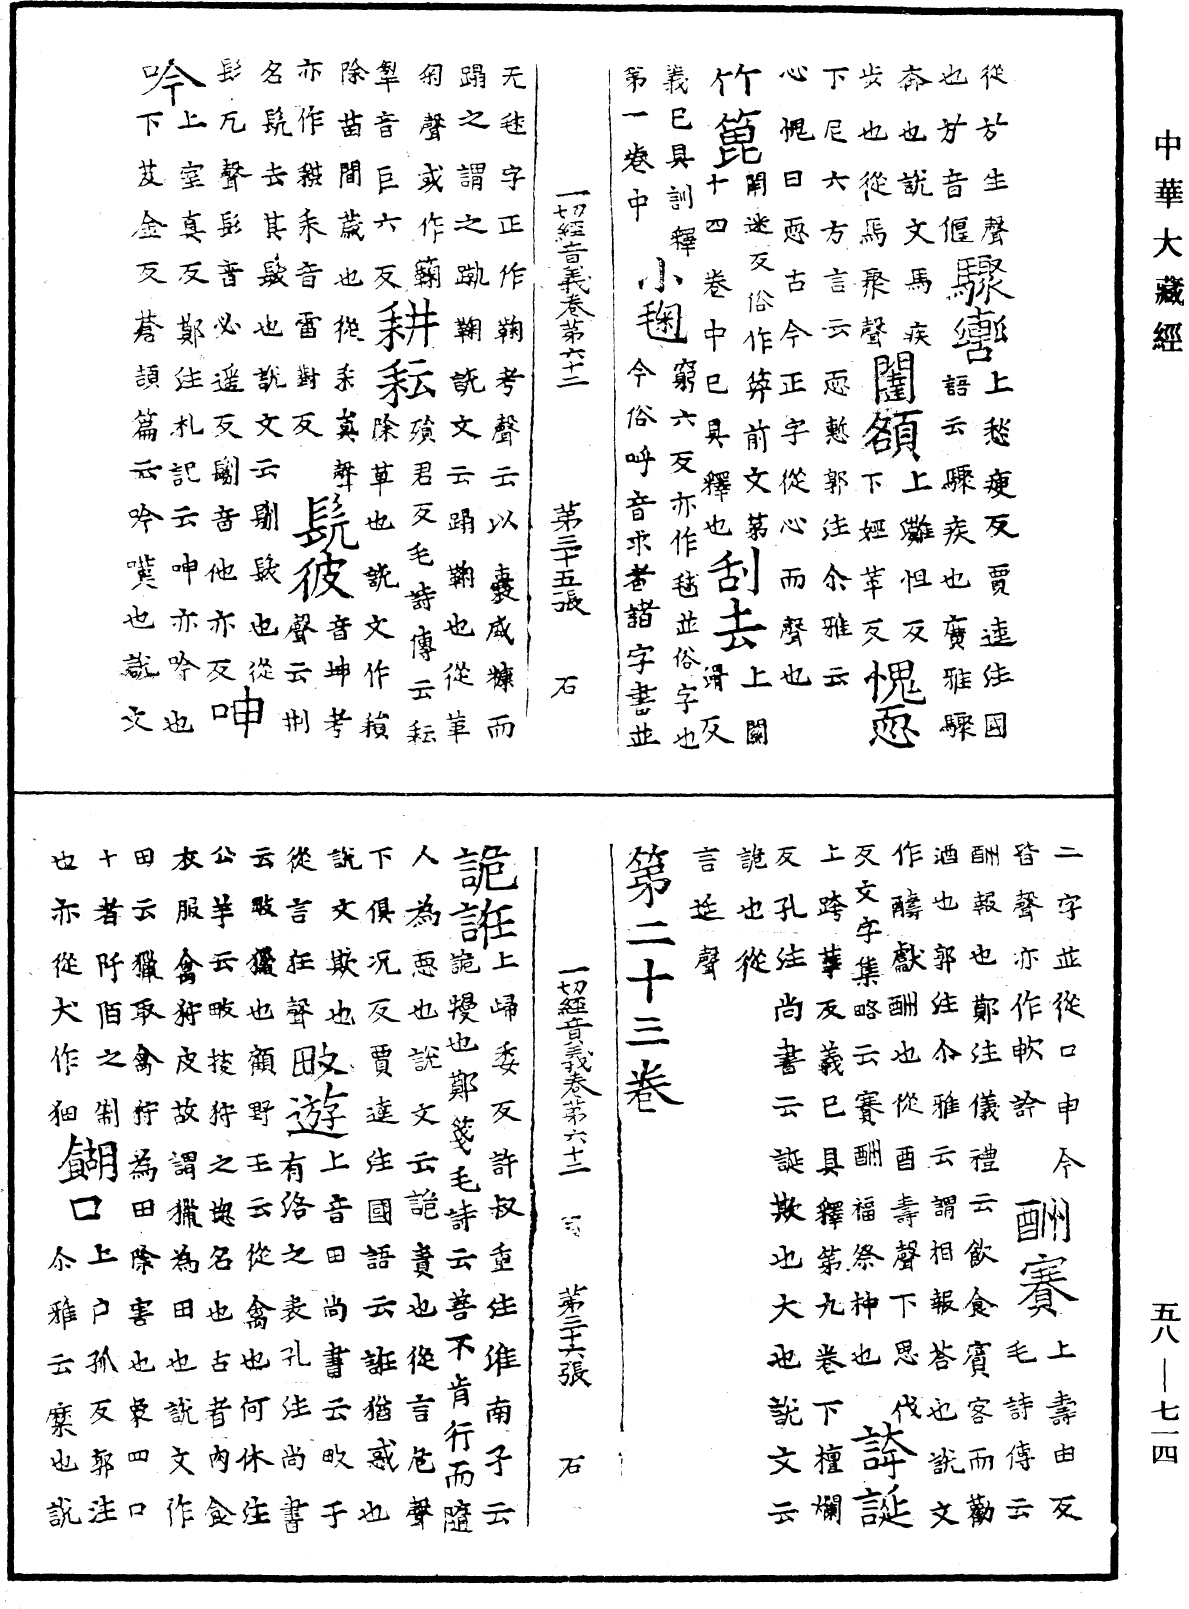 中華大藏經
從𭤨生聲驟彎上愁瘦反賈逵注國
也𭤨音偃語云驟疾也廣雅驟
奔也說文馬疾
步也從馬聚聲闤額上難怛反
下尼六方言云恧慙郭注尒雅云下婭苹反愧恧
心愧曰恧古今正字從心而聲也
竹篦閉迷反俗作箄前文第上關
十四卷中已具釋也刮去滑反
義已具訓釋窮六反亦作毬並俗字也
第一卷中小毱今俗呼音求者諸字書並
一切經音義卷第六十二 第三十五張 石
无毬字正作鞠考聲云以囊盛糠而
蹋之謂之蹴鞠說文云蹋鞠也從革
匊聲或作𥷚耕耘殞君反毛詩傳云耘
犁音巨六反除草也說文作𧂐
除苗間薉也從耒員聲音坤考
亦作𧂐耒音雷對反髡彼聲云刑
名髡去其髮也說文云剔髮也從
髟兀聲髟音必遥反剔音他亦反呻
吟上室真反鄭注礼記云呻亦吟也
下芨金反蒼頡篇云吟嘆也說文
二字並從口申今酬賽上壽由反
皆聲亦作軟訡毛詩傳云
酬報也鄭注儀禮云飲食賓客而勸
酒也郭注尒雅云謂相報荅也說文
作醻獻酬也從酉壽聲下思伐
反文字集略云賽酬福祭神也誇誕
上跨華反義已具釋第九卷下檀爛
反孔注尚書云誕欺也大也說文云
詭也從
言延聲
第二十三卷
一切經音義卷第六十二 第三十六張 石
詭誑上歸委反許叔重注淮南子云
詭謾也鄭箋毛詩云善不肯行而隨
人為惡也說文云詭責也從言危聲
下俱況反賈逵注國語云誑猶惑也
說文欺也畋遊上音田尚書云畋于
從言狂聲有洛之表孔注尚書
云畋獵也顧野王云從禽也何休注
公羊云畋捘狩之揔名也古者肉食
衣服禽狩皮故謂獵為田也說文作
田云獵取禽狩為田除害也象四口
十者阡陌之制餬口上户孤反郭注
也亦從犬作㹨尒雅云糜也說
五八—七一四